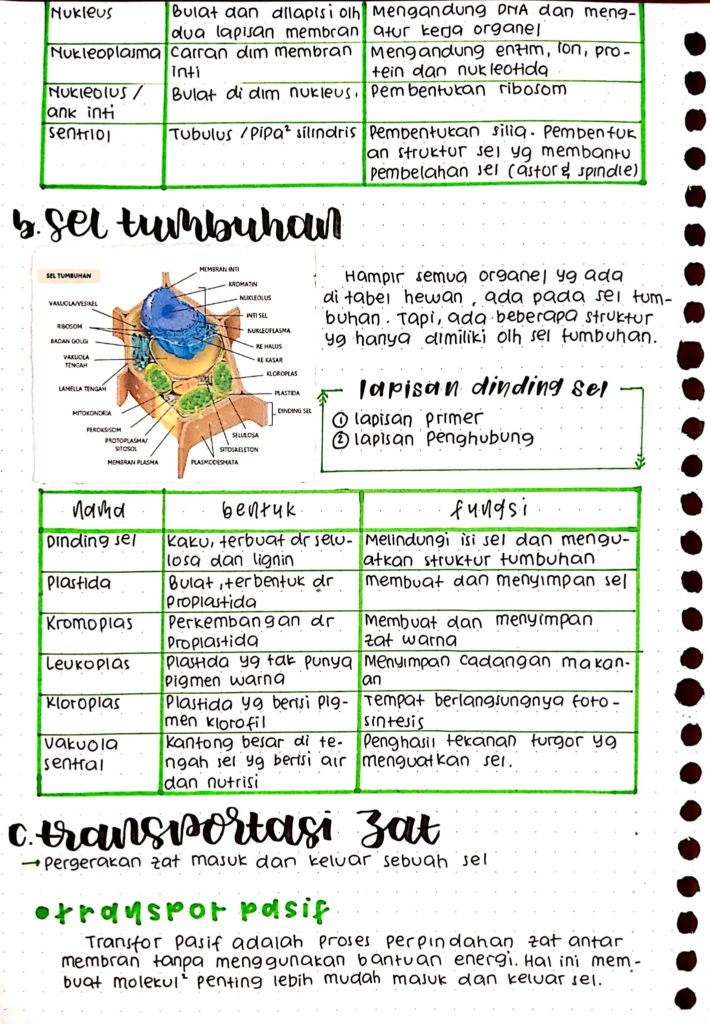 Nukleus | Bulat dan dilapisi olh dua lapisan membran | Mengandung DNA dan mengatur kerja organel
Nukleoplasma | Cairan dlm membran inti | Mengandung enzim, ion, protein dan nukleotida
Nukleolus / ank inti | Bulat di dlm nukleus. | Pembentukan ribosom
sentriol | Tubulus / pipa² silindris | Pembentukan silia. Pembentukan struktur sel yg membantu pembelahan sel (astor & spindle)
b. sel tumbuhan
SEL TUMBUHAN
MEMBRAN INTI
KROMATIN
NUKLEOLUS
INTI SEL
NUKLEOPLASMA
RE HALUS
RE KASAR
KLOROPLAS
PLASTIDA
DINDING SEL
SELULOSA
SITOSKELETON
PLASMODESMATA
VAKUOLA/VESIKEL
RIBOSOM
BADAN GOLGI
VAKUOLA TENGAH
LAMELLA TENGAH
MITOKONDRIA
PEROKSISOM
PROTOPLASMA/ SITOSOL
MEMBRAN PLASMA
Hampir semua organel yg ada
di tabel hewan, ada pada sel tum-
buhan. Tapi, ada beberapa struktur
yg hanya dimiliki olh sel tumbuhan.
lapisan dinding sel
① lapisan primer
② lapisan penghubung
nama | bentuk | fungsi
Dinding sel | Kaku, terbuat dr selulosa dan lignin | Melindungi isi sel dan menguatkan struktur tumbuhan
Plastida | Bulat, terbentuk dr Proplastida | membuat dan menyimpan sel
Kromoplas | Perkembangan dr Proplastida | Membuat dan menyimpan zat warna
Leukoplas | Plastida yg tak punya pigmen warna | Menyimpan cadangan makanan
Kloroplas | Plastida yg berisi pigmen klorofil | Tempat berlangsungnya fotosintesis
Vakuola sentral | Kantong besar di tengah sel yg berisi air dan nutrisi | Penghasil tekanan turgor yg menguatkan sel.
c. transportasi zat
→ Pergerakan zat masuk dan keluar sebuah sel
• transpor pasif
Transfor pasif adalah proses perpindahan zat antar
membran tanpa menggunakan bantuan energi. Hal ini mem-
buat molekul² penting lebih mudah masuk dan keluar sel.